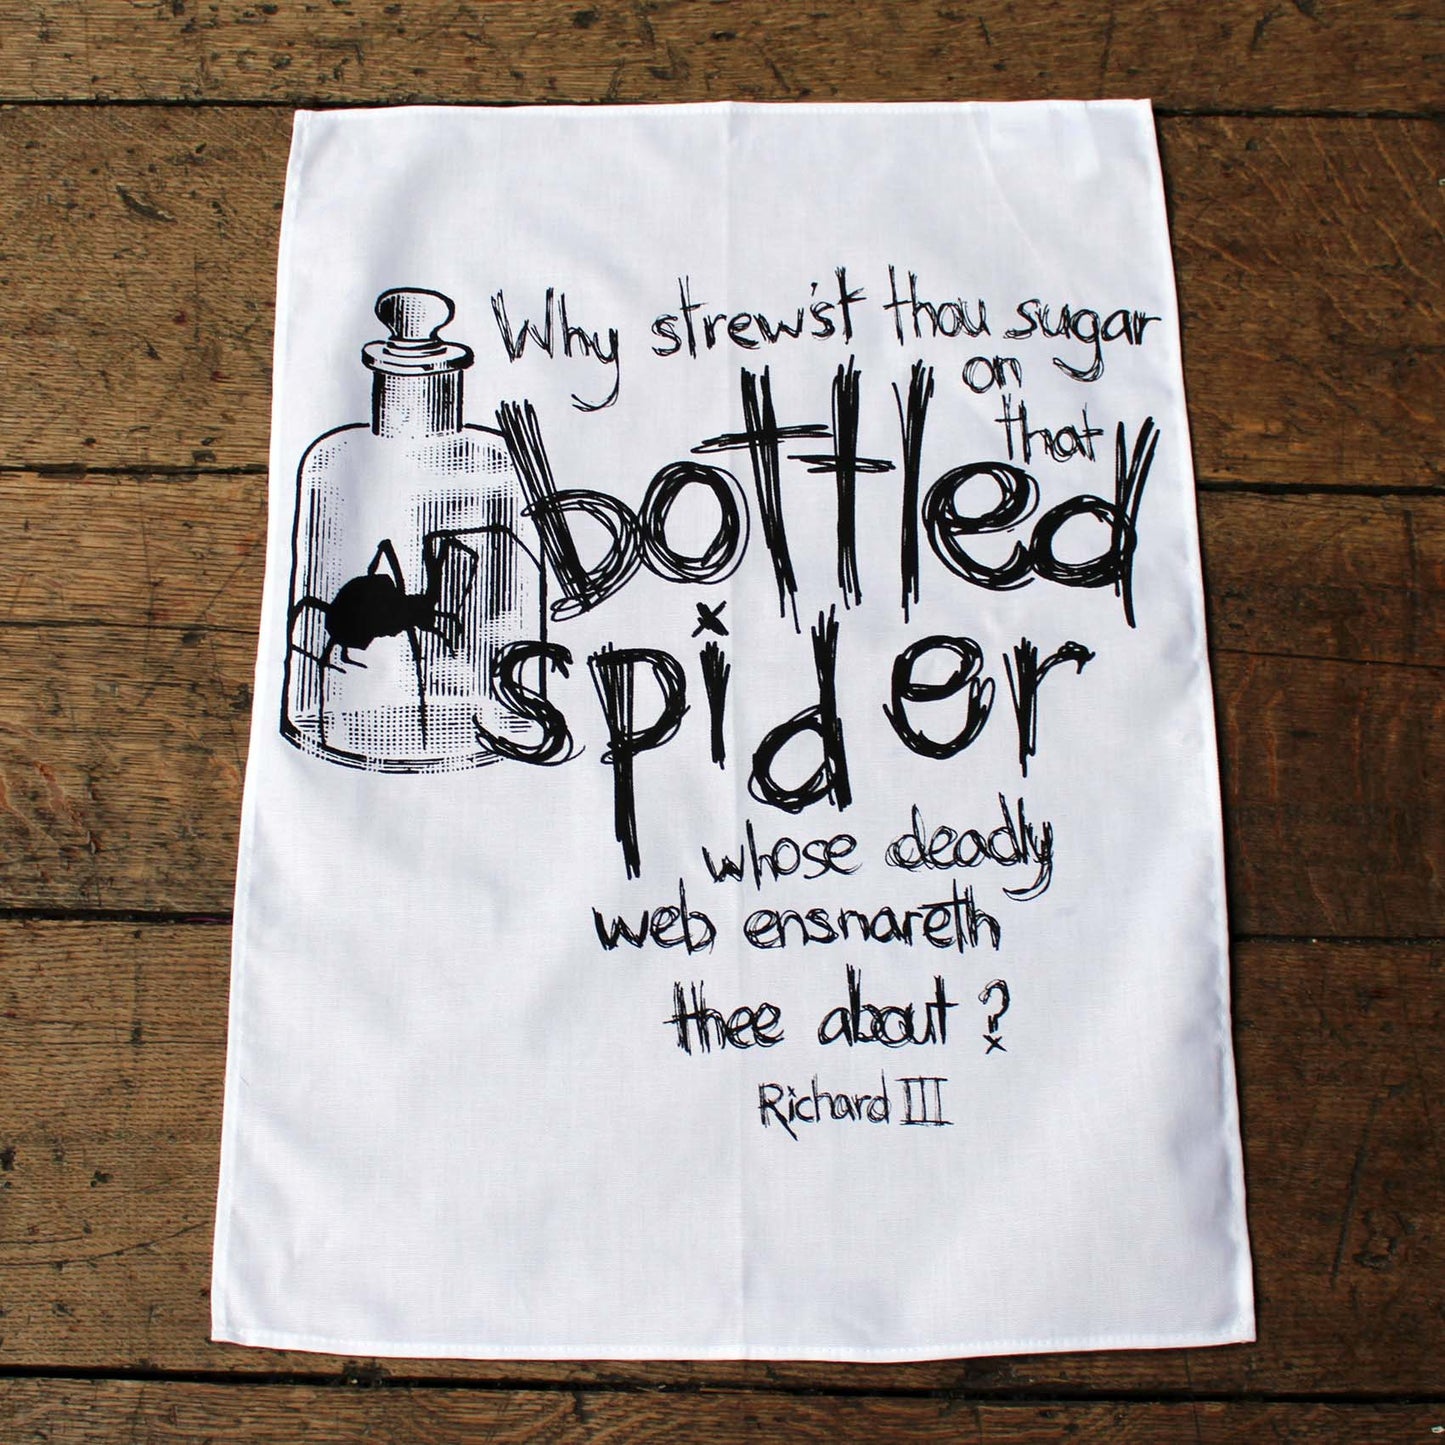 Why strew'st thou sugar
on
that
bottled
spider
whose deadly
web ensnareth
thee about?
Richard III